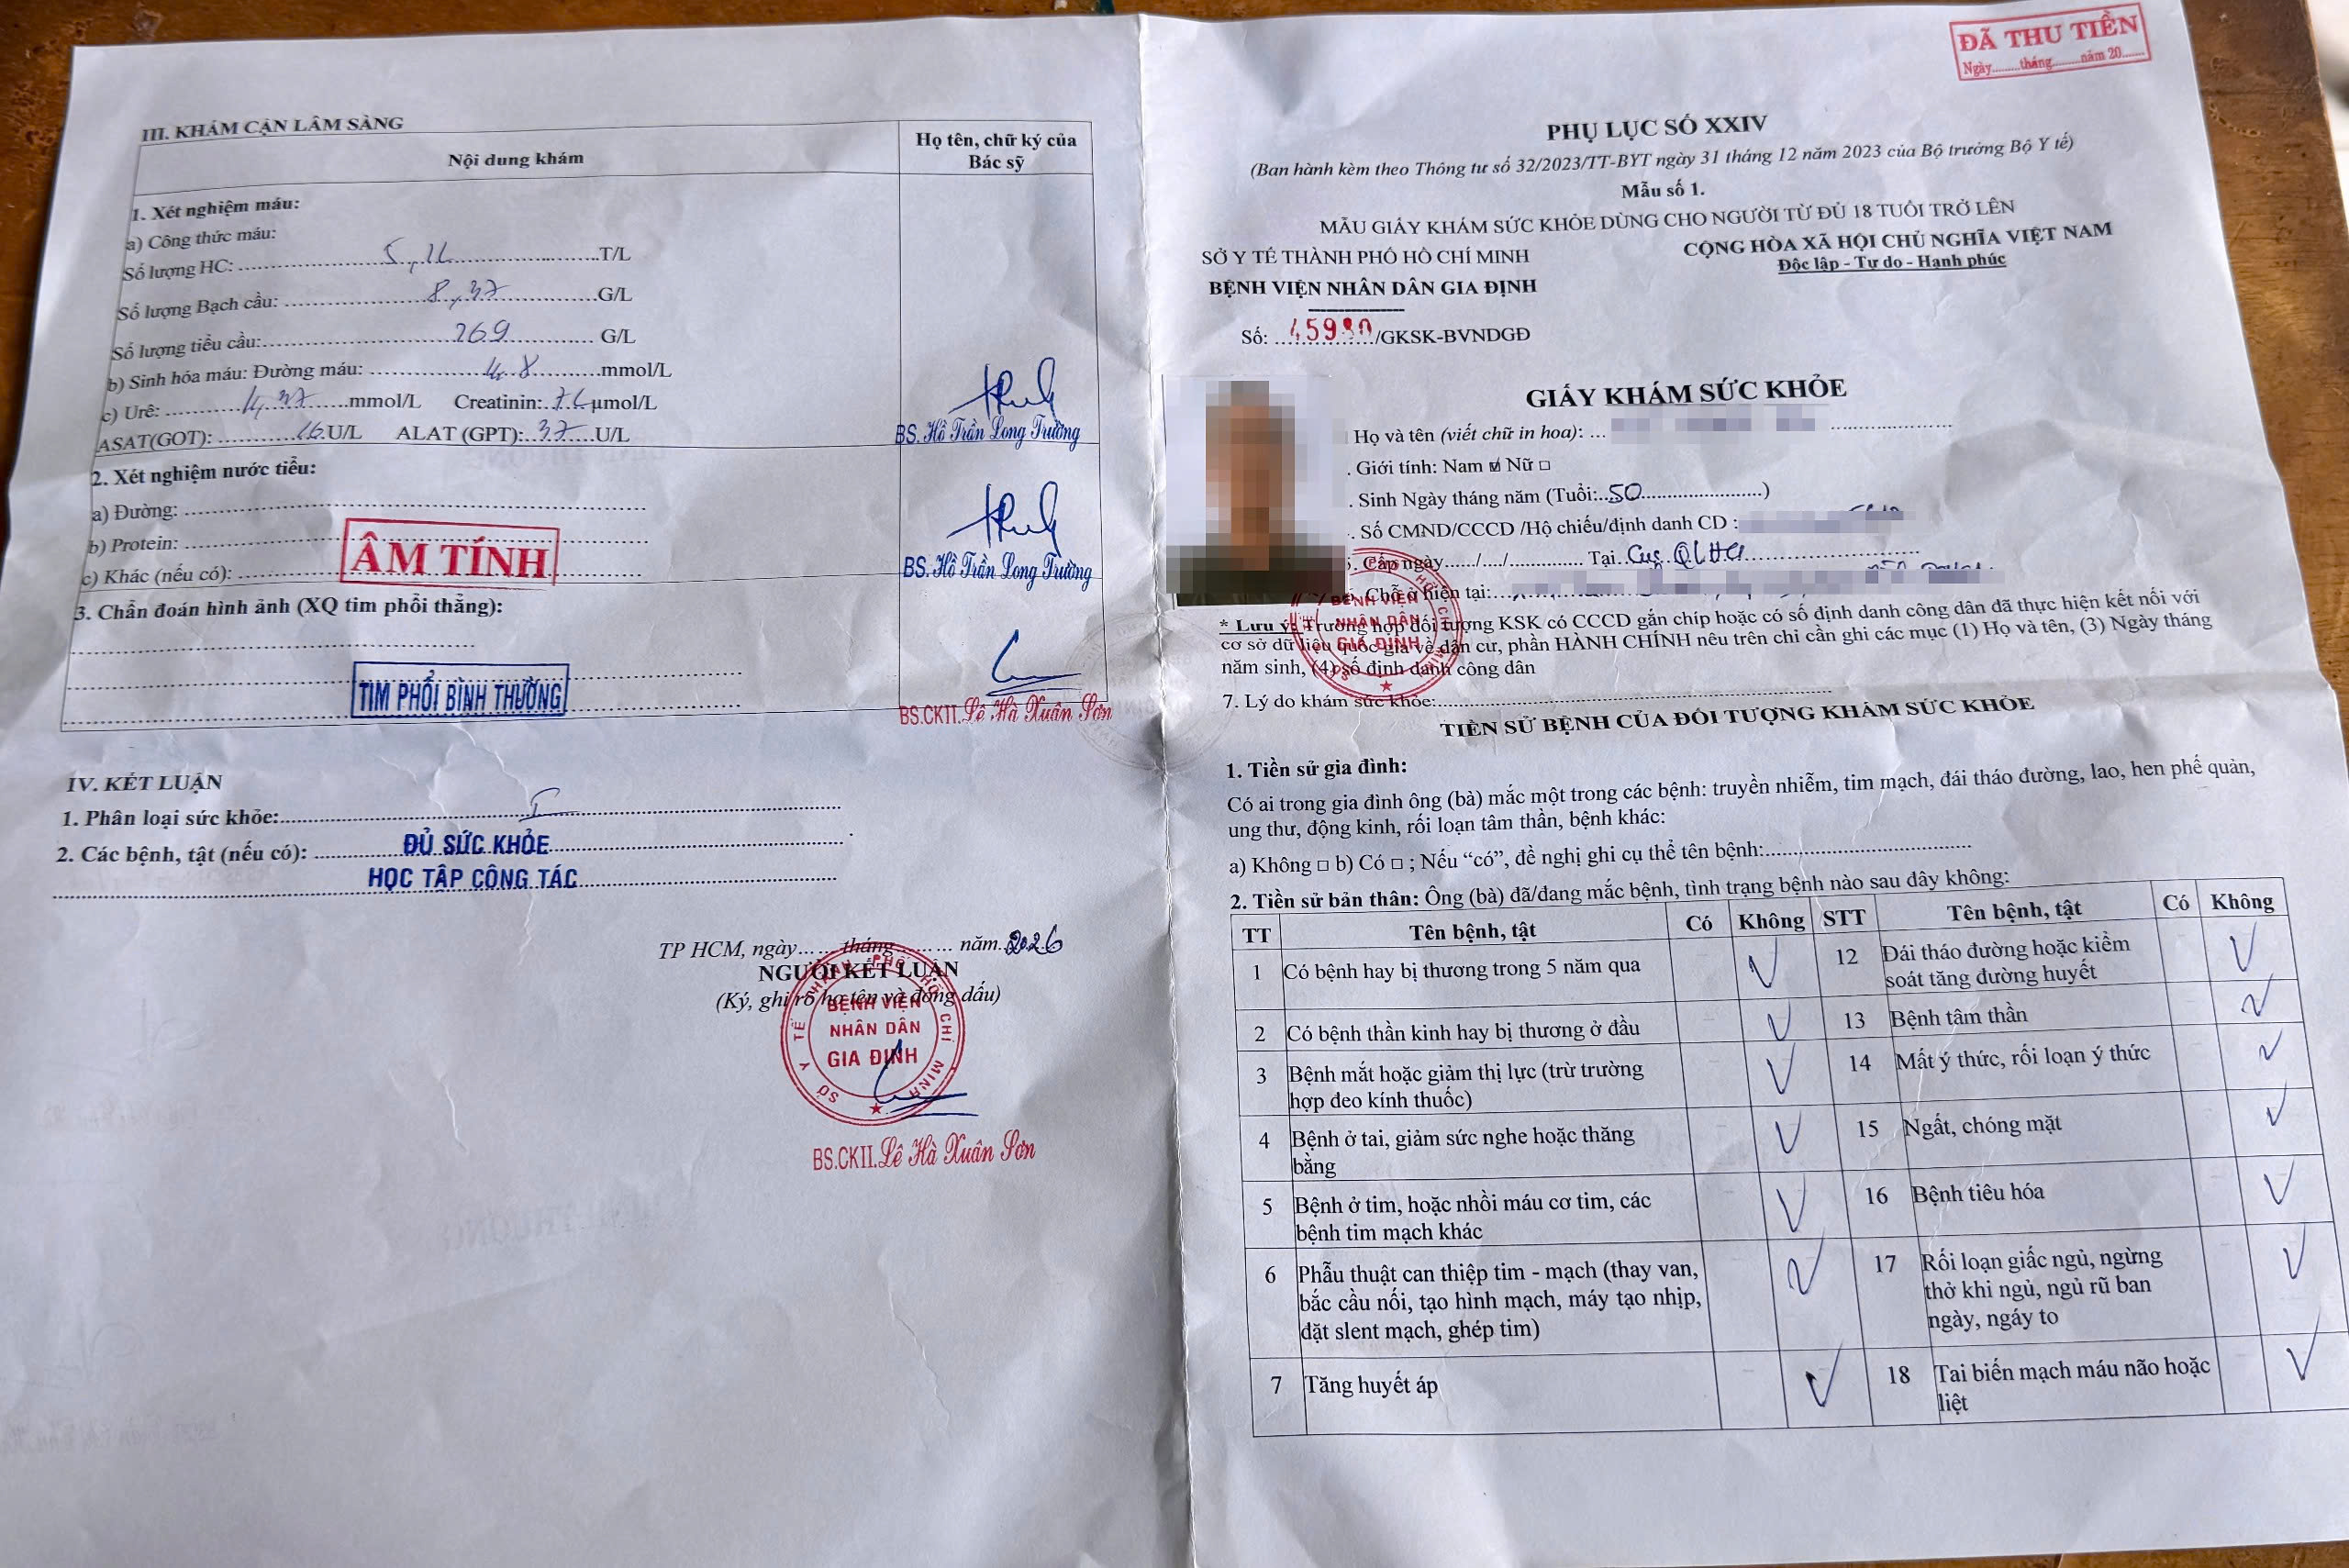 III. KHÁM CẬN LÂM SÀNG
Nội dung khám
Họ tên, chữ ký của
Bác sỹ
1. Xét nghiệm máu:
a) Công thức máu:
Số lượng HC: T/L
Số lượng Bạch cầu: 8,37 G/L
Số lượng tiểu cầu: 269 G/L
b) Sinh hóa máu: Đường máu: 4.8 mmol/L
c) Urê: 4,37 mmol/L Creatinin: µmol/L
ASAT(GOT): U/L ALAT (GPT): 37 U/L
BS. Hồ Trần Long Trường
2. Xét nghiệm nước tiểu:
a) Đường:
b) Protein:
c) Khác (nếu có):
ÂM TÍNH
BS. Hồ Trần Long Trường
3. Chẩn đoán hình ảnh (XQ tim phổi thẳng):
TIM PHỔI BÌNH THƯỜNG
BS.CKII. Lê Hà Xuân Sơn
IV. KẾT LUẬN
1. Phân loại sức khỏe: I
2. Các bệnh, tật (nếu có): ĐỦ SỨC KHỎE
HỌC TẬP CÔNG TÁC
TP HCM, ngày...... tháng........ năm 2026
NGƯỜI KẾT LUẬN
(Ký, ghi rõ họ tên và đóng dấu)
SỞ Y TẾ THÀNH PHỐ HỒ CHÍ MINH
BỆNH VIỆN
NHÂN DÂN
GIA ĐỊNH
BS.CKII. Lê Hà Xuân Sơn
ĐÃ THU TIỀN
Ngày.........tháng.........năm 20.......
PHỤ LỤC SỐ XXIV
(Ban hành kèm theo Thông tư số 32/2023/TT-BYT ngày 31 tháng 12 năm 2023 của Bộ trưởng Bộ Y tế)
Mẫu số 1.
MẪU GIẤY KHÁM SỨC KHỎE DÙNG CHO NGƯỜI TỪ ĐỦ 18 TUỔI TRỞ LÊN
SỞ Y TẾ THÀNH PHỐ HỒ CHÍ MINH
CỘNG HÒA XÃ HỘI CHỦ NGHĨA VIỆT NAM
BỆNH VIỆN NHÂN DÂN GIA ĐỊNH
Độc lập - Tự do - Hạnh phúc
Số: 45980/GKSK-BVNDGĐ
GIẤY KHÁM SỨC KHỎE
Họ và tên (viết chữ in hoa): ...
. Giới tính: Nam ☑ Nữ □
. Sinh Ngày tháng năm (Tuổi: 50)
. Số CMND/CCCD /Hộ chiếu/định danh CD :
. Cấp ngày....../..../.............. Tại Cục QLHC
Chỗ ở hiện tại:
BỆNH VIỆN
NHÂN DÂN
GIA ĐỊNH
* Lưu ý: Trường hợp đối tượng KSK có CCCD gắn chíp hoặc có số định danh công dân đã thực hiện kết nối với
cơ sở dữ liệu quốc gia về dân cư, phần HÀNH CHÍNH nêu trên chỉ cần ghi các mục (1) Họ và tên, (3) Ngày tháng
năm sinh, (4) số định danh công dân
7. Lý do khám sức khỏe:
TIỀN SỬ BỆNH CỦA ĐỐI TƯỢNG KHÁM SỨC KHỎE
1. Tiền sử gia đình:
Có ai trong gia đình ông (bà) mắc một trong các bệnh: truyền nhiễm, tim mạch, đái tháo đường, lao, hen phế quản,
ung thư, động kinh, rối loạn tâm thần, bệnh khác:
a) Không □ b) Có □ ; Nếu “có”, đề nghị ghi cụ thể tên bệnh:
2. Tiền sử bản thân: Ông (bà) đã/đang mắc bệnh, tình trạng bệnh nào sau đây không:
TT Tên bệnh, tật Có Không STT Tên bệnh, tật Có Không
1 Có bệnh hay bị thương trong 5 năm qua
12 Đái tháo đường hoặc kiểm
soát tăng đường huyết
2 Có bệnh thần kinh hay bị thương ở đầu
13 Bệnh tâm thần
3 Bệnh mắt hoặc giảm thị lực (trừ trường
hợp đeo kính thuốc)
14 Mất ý thức, rối loạn ý thức
4 Bệnh ở tai, giảm sức nghe hoặc thăng
bằng
15 Ngất, chóng mặt
5 Bệnh ở tim, hoặc nhồi máu cơ tim, các
bệnh tim mạch khác
16 Bệnh tiêu hóa
6 Phẫu thuật can thiệp tim - mạch (thay van,
bắc cầu nối, tạo hình mạch, máy tạo nhịp,
đặt slent mạch, ghép tim)
17 Rối loạn giấc ngủ, ngừng
thở khi ngủ, ngủ rũ ban
ngày, ngáy to
7 Tăng huyết áp
18 Tai biến mạch máu não hoặc
liệt